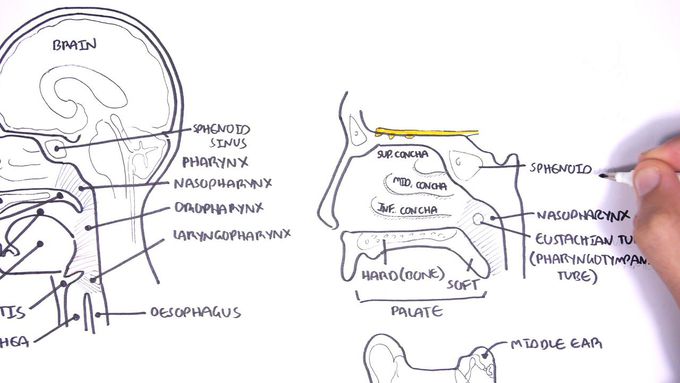 BRAIN
SPHENOID
SINUS
PHARYNX
NASOPHARYNX
OROPHARYNX
LARYNGOPHARYNX
OESOPHAGUS
TIS
HEA
SUP. CONCHA
MID. CONCHA
INF. CONCHA
SPHENOID
NASOPHARYNX
EUSTACHIAN TU
(PHARYNGOTYMPAN
TUBE)
HARD (BONE)
SOFT
PALATE
MIDDLE EAR